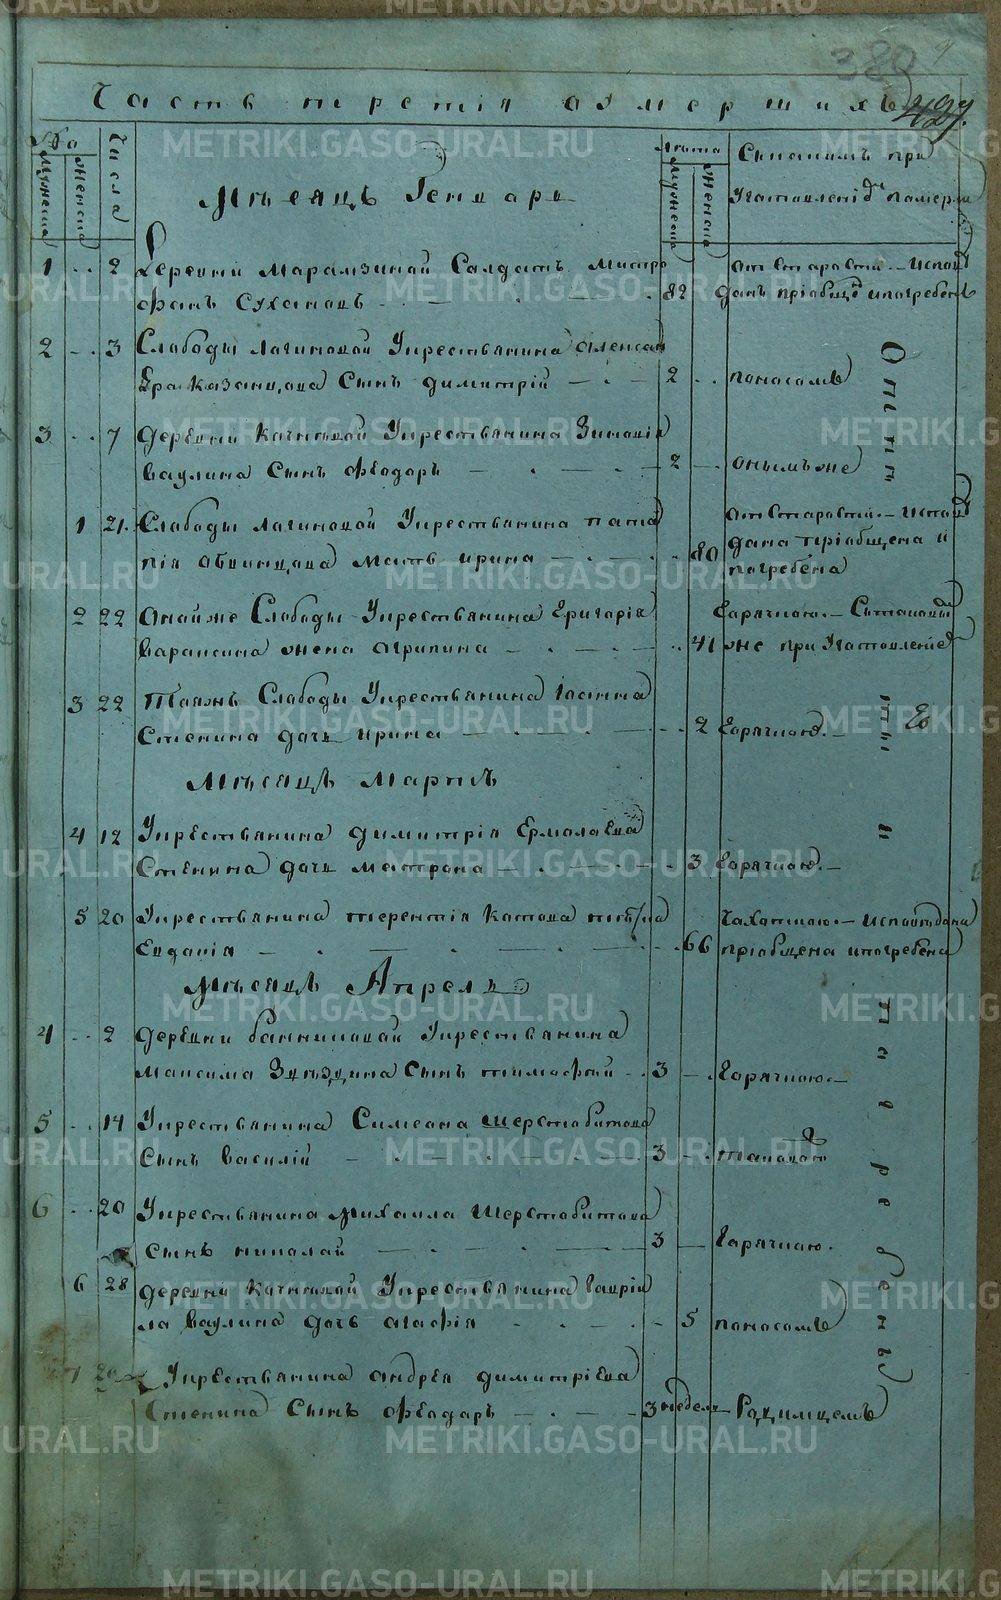 389
Часть третія о умершихъ
499.
No
Мужеска
Женска
Числа
Мѣсяцъ Генварь
Лѣта
Мужеска
Женска
Сказаннымъ при
1 .. 2 Деревни Марамзиной Салдатъ Митро
фанъ Сухановъ — . — 82
от старости. — Испов
данъ пріобще и погребенъ
2 .. 3 Слободы Логиновой Укрестьянина Алексан
Казанцова Сынъ Димитрій — . — 2 ..
поносомъ
3 .. 7 Деревни Кочневой Укрестьянина Зиновія
Ваулина Сынъ Феодоръ — . — 2 —
онымъ же
1 21. Слободы Логиновой Укрестьянина
пія Мать Ирина — . — 80
от старости. — Испов
дана пріобщена и
погребена
2 22 Онойже Слободы Укрестьянина Григорія
Вараксина жена Агрипина — . — .. 41
Горячкою. —
же при
3 22 Тояжъ Слободы Укрестьянина Іоанна
Стенина дочь Ирина — . — .. 2
Горячкою. —
Мѣсяцъ Мартъ
4 12 Укрестьянина Димитрія Ермолаева
Стенина дочь Матрона — . — 3
Горячкою. —
5 20 Укрестьянина Терентія Котова
Евдокія — . — 66
Чахоткою. — Исповѣдана
пріобщена и погребена
Мѣсяцъ Апрель
4 .. 2 Деревни Укрестьянина
Максима Звѣздина Сынъ Тимофей .. 3 —
Горячкою. —
5 .. 14 Укрестьянина Симеона Шерстобитова
Сынъ Василій — . — 3 —
6 .. 20 Укрестьянина Михаила Шерстобитова
Сынъ Николай — . — 3 —
Горячкою.
6 28 Деревни Кочневой Укрестьянина Гаврі
ла Ваулина дочь Агафія — . — 5
поносомъ
7 29 Укрестьянина Андрея Димитріева
Стенина Сынъ Феодоръ — . — 3 недель
Родимцемъ